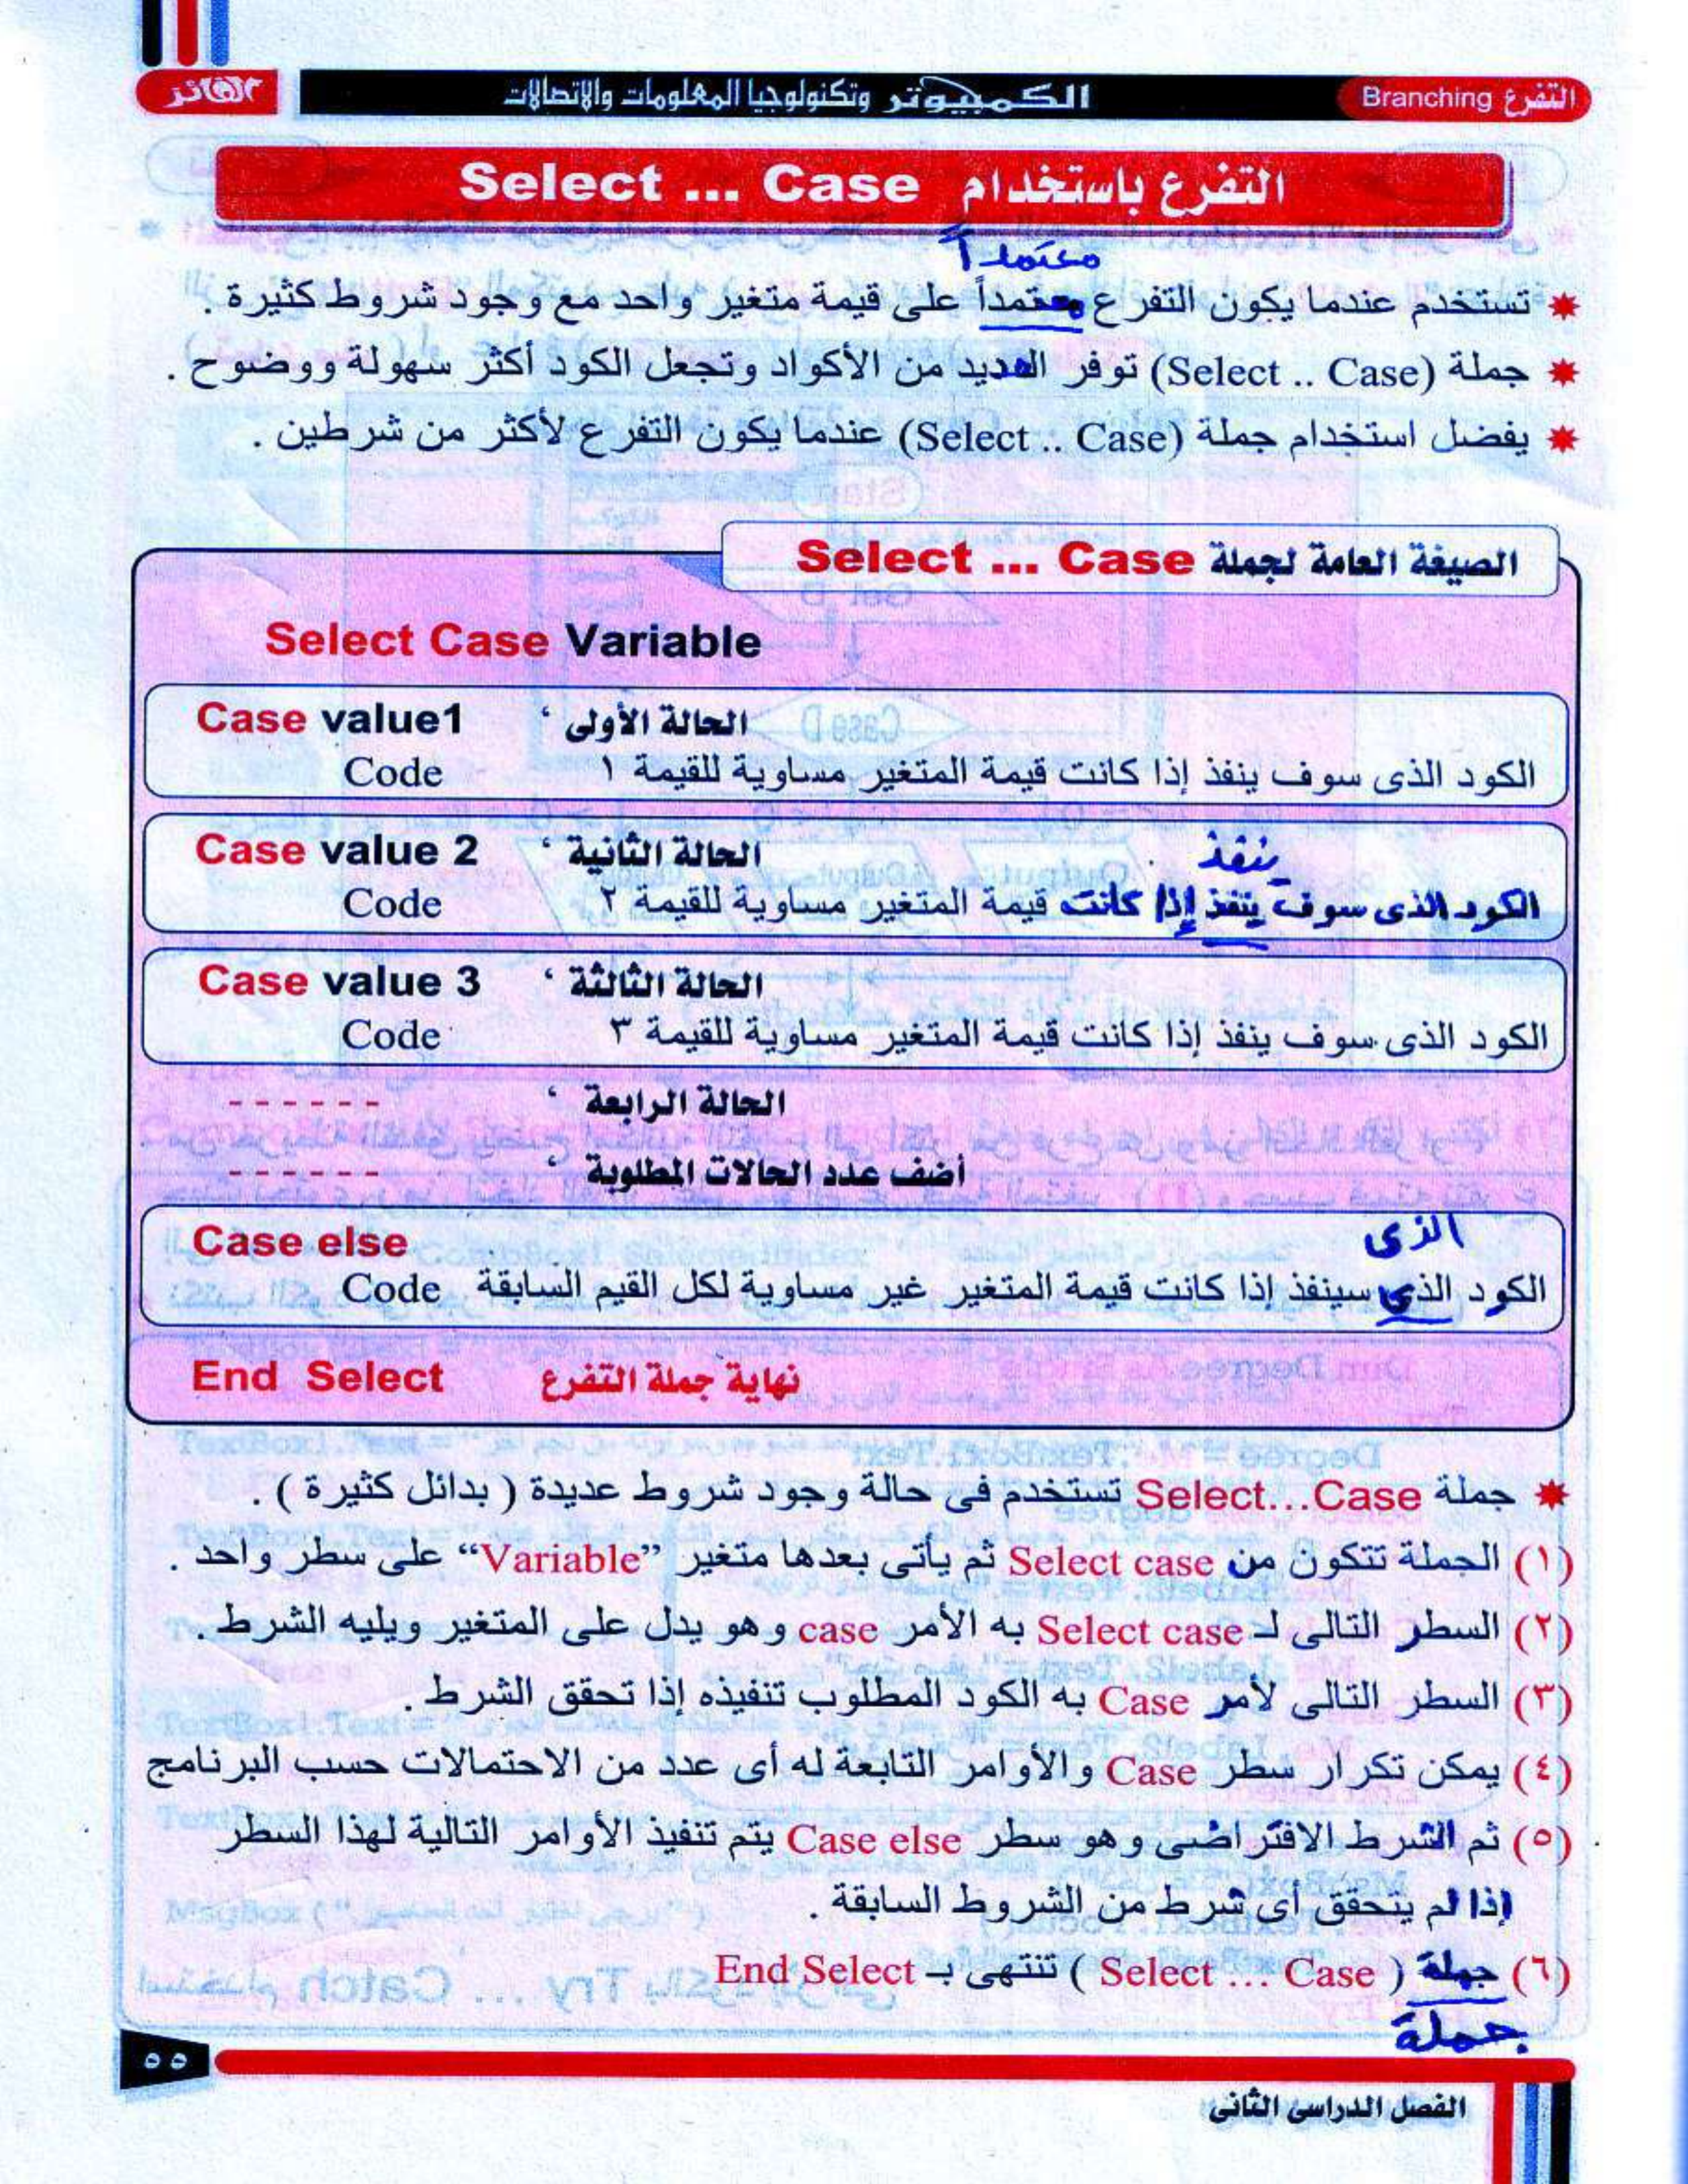 التفرع Branching
الكمبيوتر وتكنولوجيا المعلومات والاتصالات
الفائز
التفرع باستخدام Select ... Case
معتمداً
* تستخدم عندما يكون التفرع معتمداً على قيمة متغير واحد مع وجود شروط كثيرة .
* جملة (Select .. Case) توفر العديد من الأكواد وتجعل الكود أكثر سهولة ووضوح .
* يفضل استخدام جملة (Select .. Case) عندما يكون التفرع لأكثر من شرطين .
الصيغة العامة لجملة Select ... Case
Select Case Variable
Case value1 ‘ الحالة الأولى
Code الكود الذى سوف ينفذ إذا كانت قيمة المتغير مساوية للقيمة ١
Case value 2 ‘ الحالة الثانية
ينفذ
Code الكود الذى سوف يتنفذ إذا كانت قيمة المتغير مساوية للقيمة ٢
Case value 3 ‘ الحالة الثالثة
Code الكود الذى سوف ينفذ إذا كانت قيمة المتغير مساوية للقيمة ٣
------ ‘ الحالة الرابعة
------ ‘ أضف عدد الحالات المطلوبة
Case else
الذى
Code الكود الذى سينفذ إذا كانت قيمة المتغير غير مساوية لكل القيم السابقة
End Select نهاية جملة التفرع
* جملة Select...Case تستخدم فى حالة وجود شروط عديدة ( بدائل كثيرة ) .
(١) الجملة تتكون من Select case ثم يأتى بعدها متغير “Variable” على سطر واحد .
(٢) السطر التالى لـ Select case به الأمر case وهو يدل على المتغير ويليه الشرط .
(٣) السطر التالى لأمر Case به الكود المطلوب تنفيذه إذا تحقق الشرط .
(٤) يمكن تكرار سطر Case والأوامر التابعة له أى عدد من الاحتمالات حسب البرنامج
(٥) ثم الشرط الافتراضى وهو سطر Case else يتم تنفيذ الأوامر التالية لهذا السطر
إذا لم يتحقق أى شرط من الشروط السابقة .
(٦) جملة ( Select ... Case ) تنتهى بـ End Select
جملة
٥٥
الفصل الدراسى الثانى